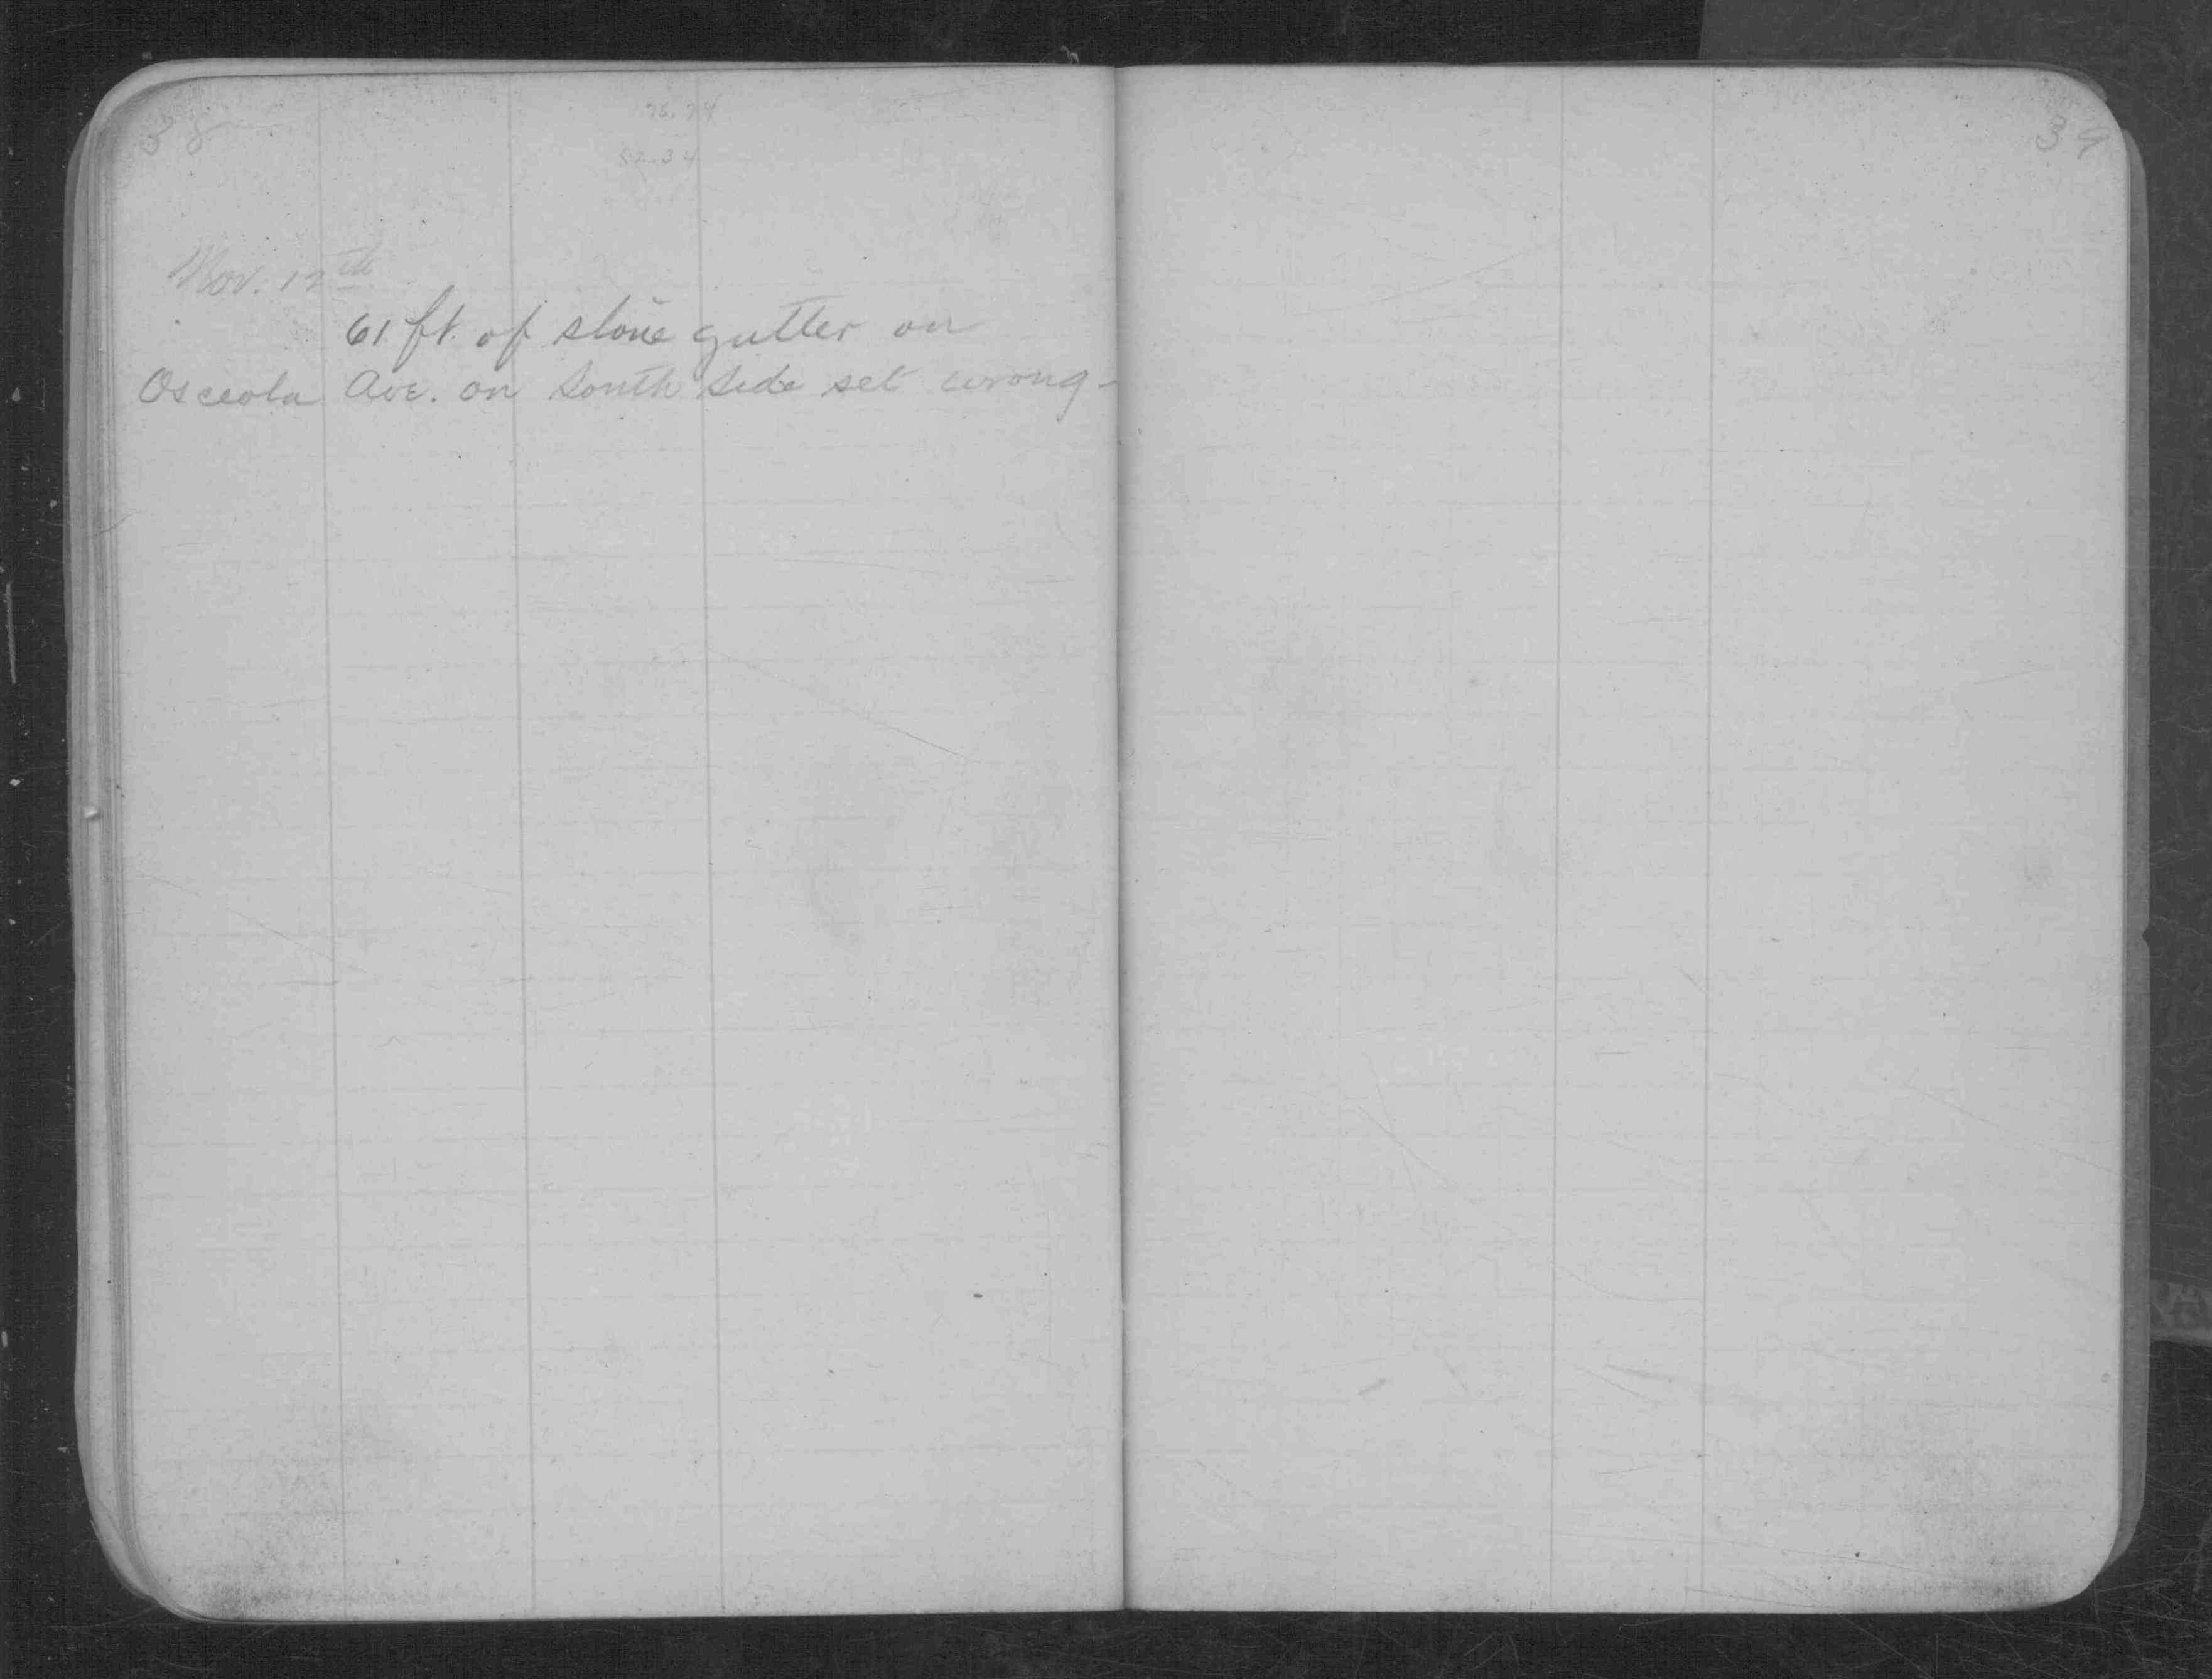 38
76.74
52.34
Nov. 12th
61 ft. of stone gutter on
Osceola Ave. on South side set wrong-
39